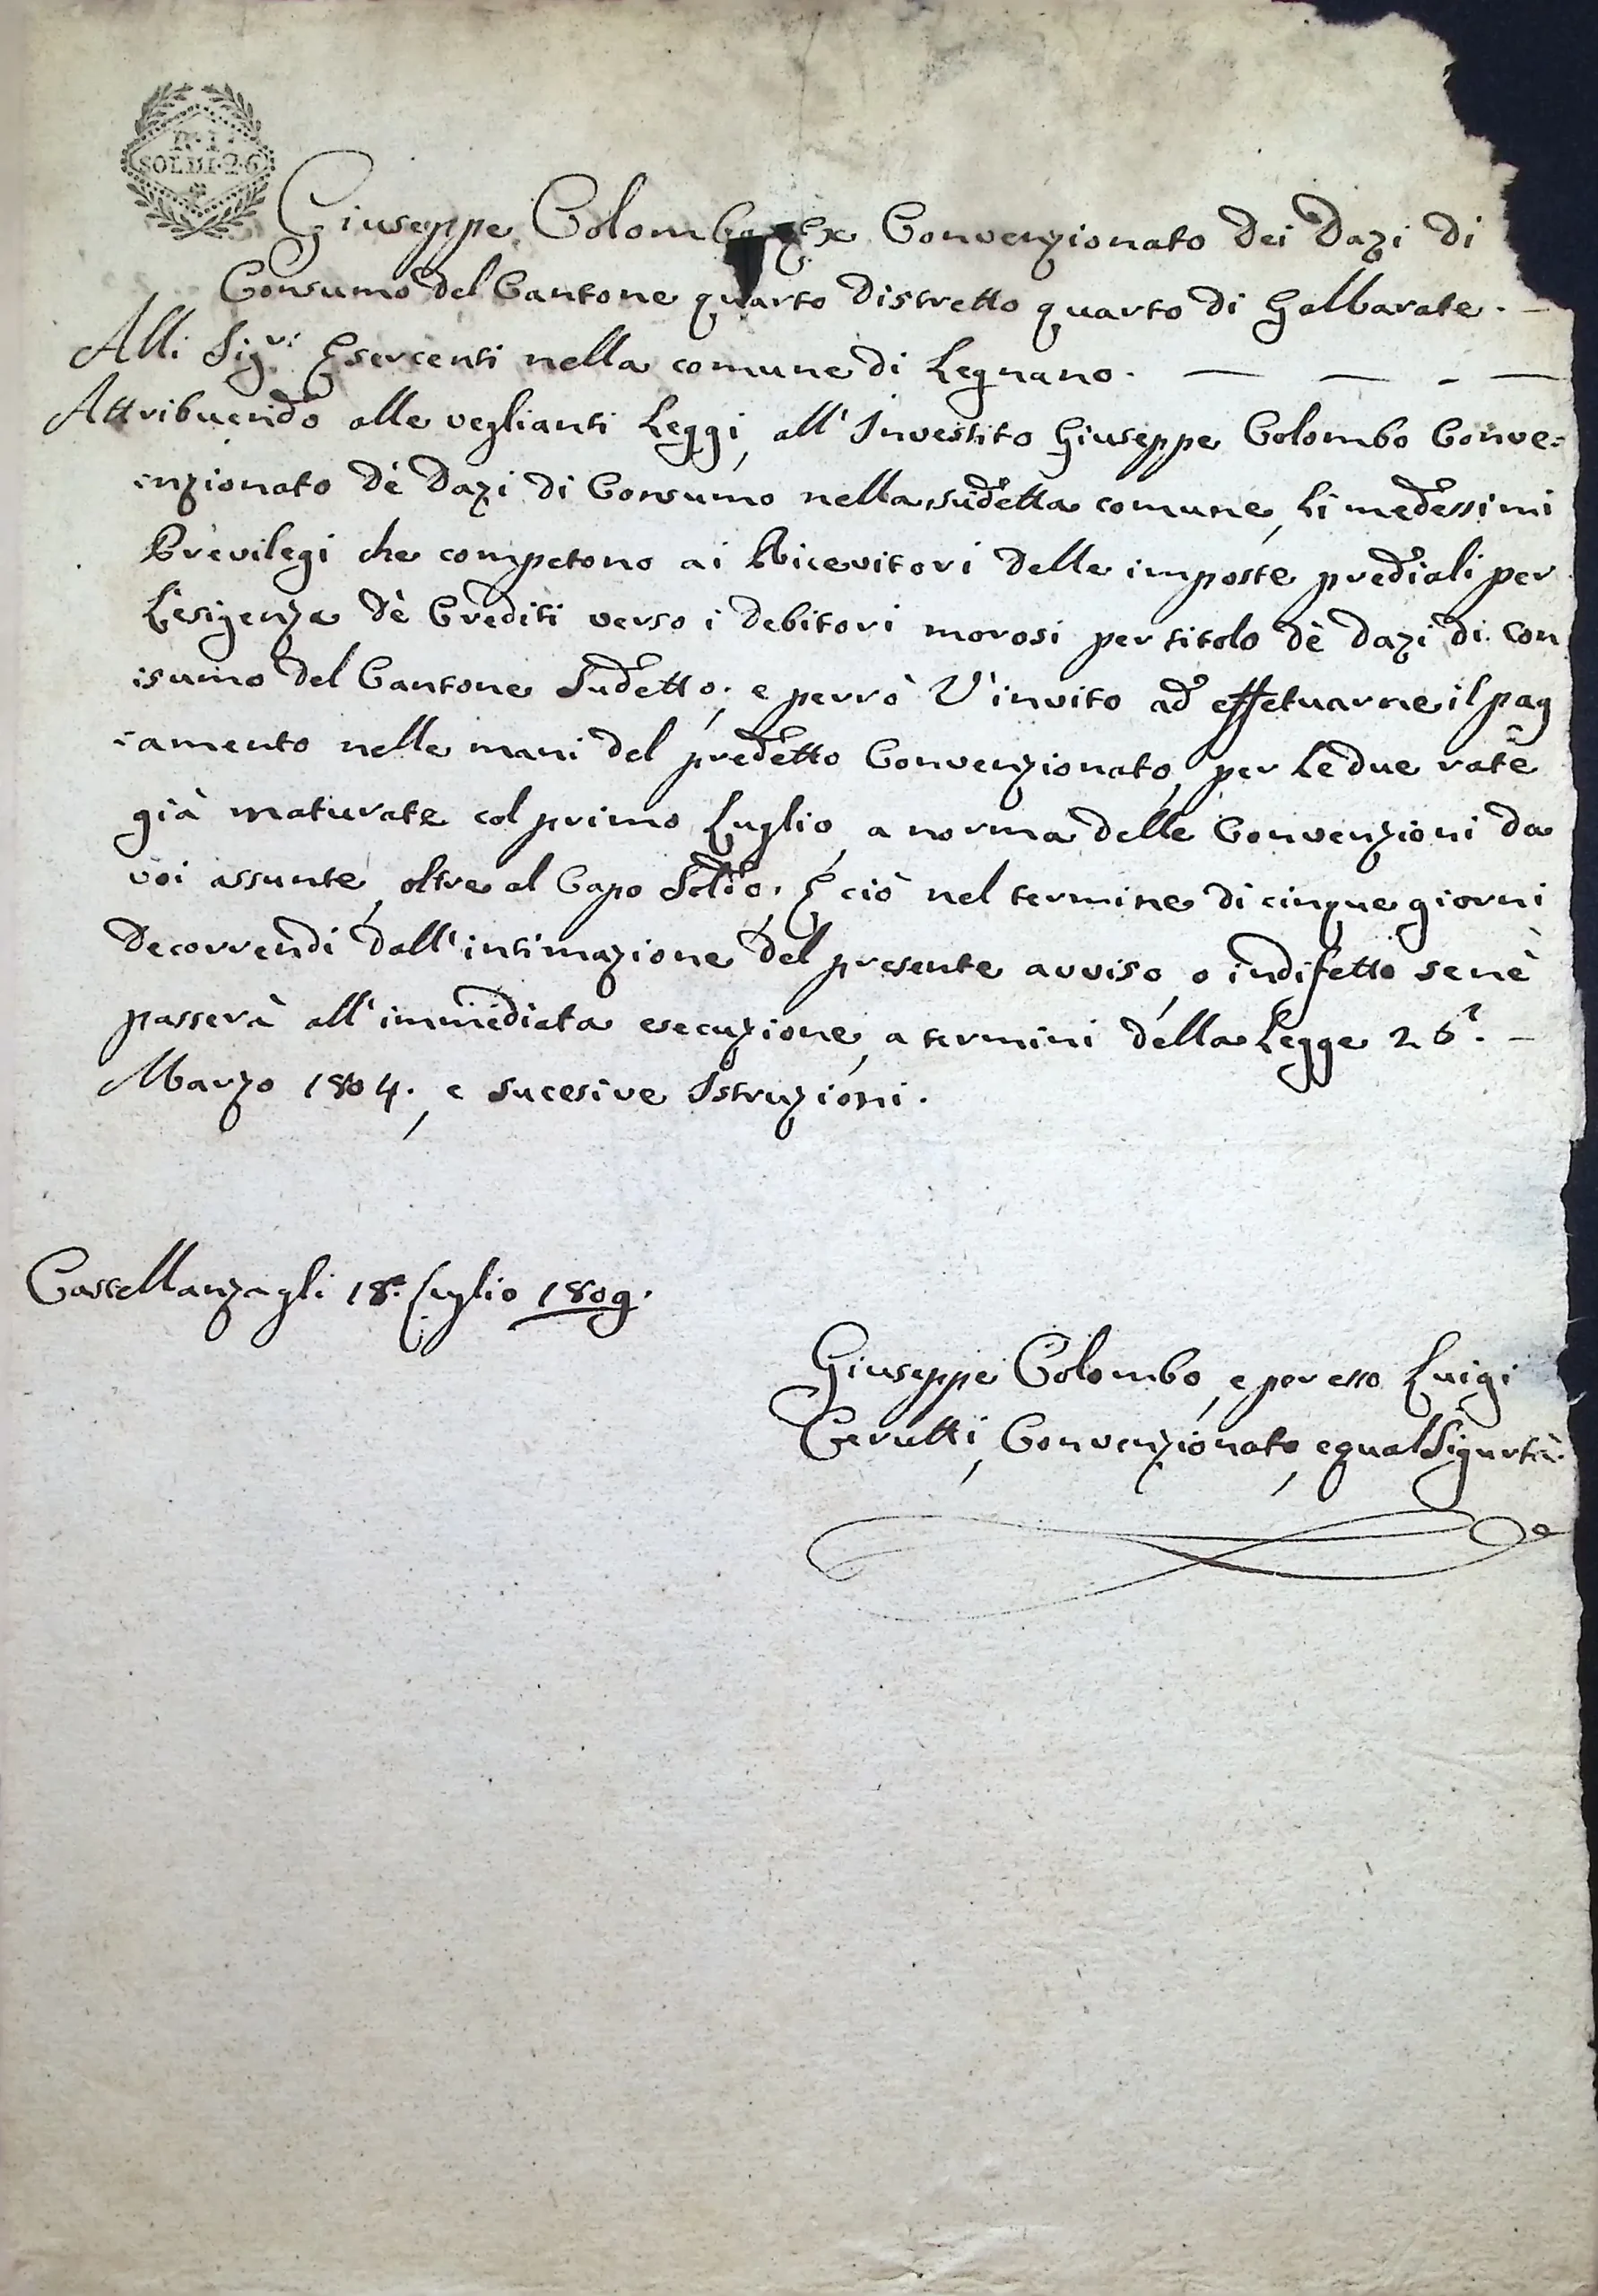 R. I.
SOLDI. 2. 6
Giuseppe Colombo Ex Convenzionato dei Dazi di
Consumo del Cantone quarto Distretto quarto di Gallarate. -
Alli Sig.ri Esercenti nella comune di Legnano. — — - —
Attribuendo alle veglianti Leggi, all'Investito Giuseppe Colombo Conve=
nzionato dè Dazi di Consumo nella sudetta comune, li medessimi
Previlegi che competono ai Ricevitori delle imposte prediali per
L'esigenza dè Crediti verso i debitori morosi per titolo dè dazi di Con
sumo del Cantone Sudetto; e perrò V'invito ad effetuarne il pag
amento nelle mani del predetto Convenzionato, per le due rate
già maturate col primo Luglio, a norma delle Convenzioni da
voi assunte, oltre al Capo Soldo, E ciò nel termine di cinque giorni
decorrendi dall'intimazione del presente avviso, o indifetto senè
passerà all'immediata esecuzione, a termini della Legge 26. -
Marzo 1804., e sucesive Istruzioni.
Castellanza gli 18. Luglio 1809.
Giuseppe Colombo, e per esso Luigi
Cerutti, Convenzionato, e qual Sigurtà.